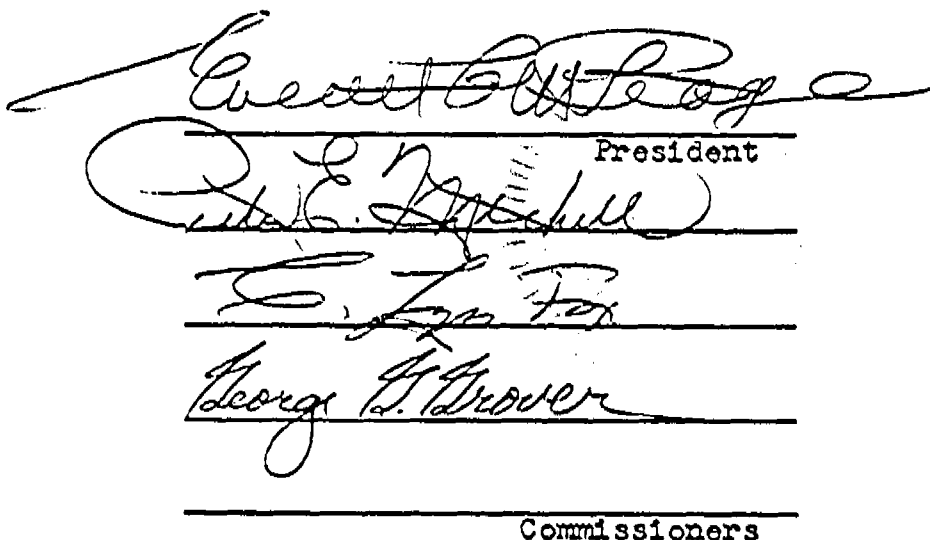 Everett C. McKeage
President
Peter E. Mitchell
C. Lyn Fox
George G. Grover
Commissioners